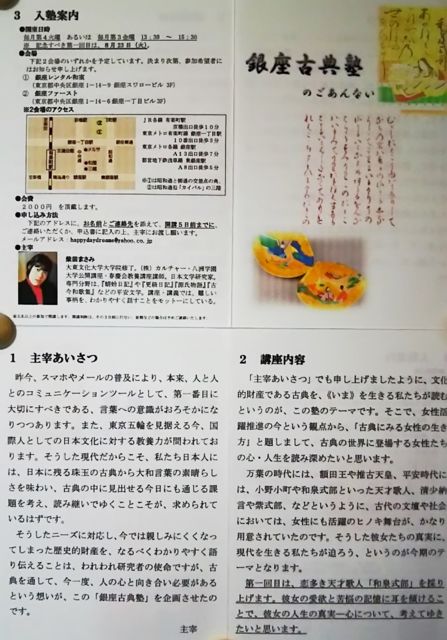 3 入塾案内
●開座日時
毎月第4火曜 あるいは 毎月第3金曜 13:30 ～ 15:30
※ 記念すべき第一回目は、8月23日(火)。
●会場
下記2会場のいずれかを予定しています。決まり次第、参加希望者に
はお知らせ申し上げます。
① 銀座レンタル和室
(東京都中央区銀座1-14-9 銀座スワロービル3F)
② 銀座ファースト
(東京都中央区銀座1-14-6 銀座一丁目ビル3F)
※2会場のアクセス
JR各線 有楽町駅
京橋出口徒歩10分
東京メトロ有楽町線 銀座一丁目駅
10出口徒歩3分
東京メトロ各線 銀座駅
A13出口徒歩7分
都営地下鉄浅草線 東銀座駅
A8出口徒歩7分
●会費
2000円 を頂戴します。
●申し込み方法
下記のアドレスに、お名前とご連絡先を添えて、開講5日前までに、
ご連絡いただくか、申込書に記入の上、主宰にお渡し願います。
メールアドレス:happydaydreams@yahoo.co.jp
●主宰
柴田まさみ
大東文化大学大学院修了。(株)カルチャー・八洲学園
大学公開講座・春慶会教養講座講師。日本文学研究家。
専門分野は、『蜻蛉日記』や『更級日記』『源氏物語』『古
今和歌集』などの平安文学。講座・講義では、難しい
事柄を、わかりやすく話すことをモットーにしている。
銀座古典塾
のごあんない
1 主宰あいさつ
昨今、スマホやメールの普及により、本来、人と人
とのコミュニケーションツールとして、第一番目に
大切にすべきである、言葉への意識がおろそかにな
りつつあります。また、東京五輪を見据える今、国
際人としての日本文化に対する教養力が問われてお
ります。そうした現代だからこそ、私たち日本人に
は、日本に残る珠玉の古典から大和言葉の素晴らし
さを味わい、古典の中に見出せる今日にも通じる課
題を考え、読み継いでゆくことこそが、求められて
いるはずです。
そうしたニーズに対応し、今では親しみにくくなっ
てしまった歴史的財産を、なるべくわかりやすく語
り伝えることは、われわれ研究者の使命ですが、古
典を通して、今一度、人の心と向き合い必要がある
という想いが、この「銀座古典塾」を企画させたの
です。
主宰
2 講座内容
「主宰あいさつ」でも申し上げましたように、文化
的財産である古典を、《いま》を生きる私たちが読む
というのが、この塾のテーマです。そこで、女性活
躍推進の今という観点から、「古典にみる女性の生き
方」と題しまして、古典の世界に登場する女性たち
の心・人生を読み深めたいと思います。
万葉の時代には、額田王や推古天皇、平安時代に
は、小野小町や和泉式部といった天才歌人、清少納
言や紫式部、などというように、古代の文壇や社会
においては、女性にも活躍のヒノキ舞台が、かなり
用意されていたのです。そうした彼女たちの真実に、
現代を生きる私たちが迫ろう、というのが今期のテ
ーマとなります。
第一回目は、恋多き天才歌人「和泉式部」を採り
上げます。彼女の愛欲と苦悩の記憶に耳を傾けるこ
とで、彼女の人生の真実―心について、考えてゆき
たいと思います。